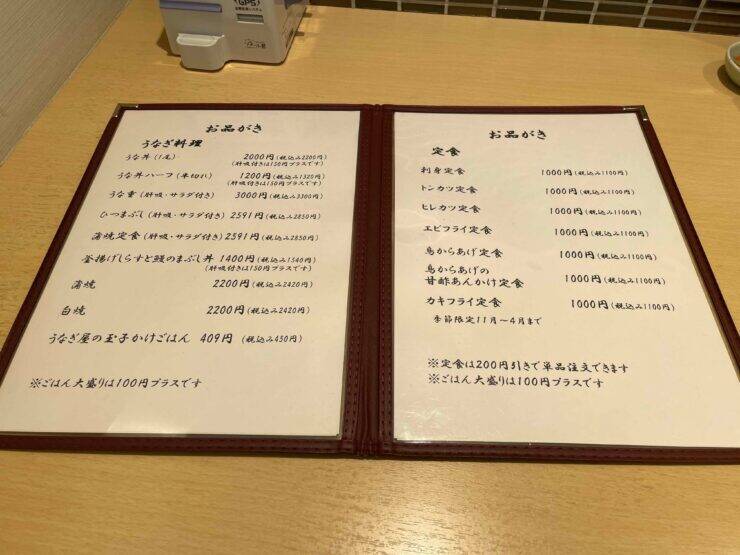 GPS
お品がき
うなぎ料理
うな丼（1尾） 2000円（税込み2200円）
（肝吸付きは150円プラスです）
うな丼ハーフ（半切れ） 1200円（税込み1320円）
（肝吸付きは150円プラスです）
うな重（肝吸・サラダ付き） 3000円（税込み3300円）
ひつまぶし（肝吸・サラダ付き） 2591円（税込み2850円）
蒲焼定食（肝吸・サラダ付き） 2591円（税込み2850円）
釜揚げしらすと鰻のまぶし丼 1400円（税込み1540円）
（肝吸付きは150円プラスです）
蒲焼 2200円（税込み2420円）
白焼 2200円（税込み2420円）
うなぎ屋の玉子かけごはん 409円（税込み450円）
※ごはん大盛りは100円プラスです
お品がき
定食
刺身定食 1000円（税込み1100円）
トンカツ定食 1000円（税込み1100円）
ヒレカツ定食 1000円（税込み1100円）
エビフライ定食 1000円（税込み1100円）
鳥からあげ定食 1000円（税込み1100円）
鳥からあげの
甘酢あんかけ定食 1000円（税込み1100円）
カキフライ定食 1000円（税込み1100円）
季節限定11月～4月まで
※定食は200円引きで単品注文できます
※ごはん大盛りは100円プラスです